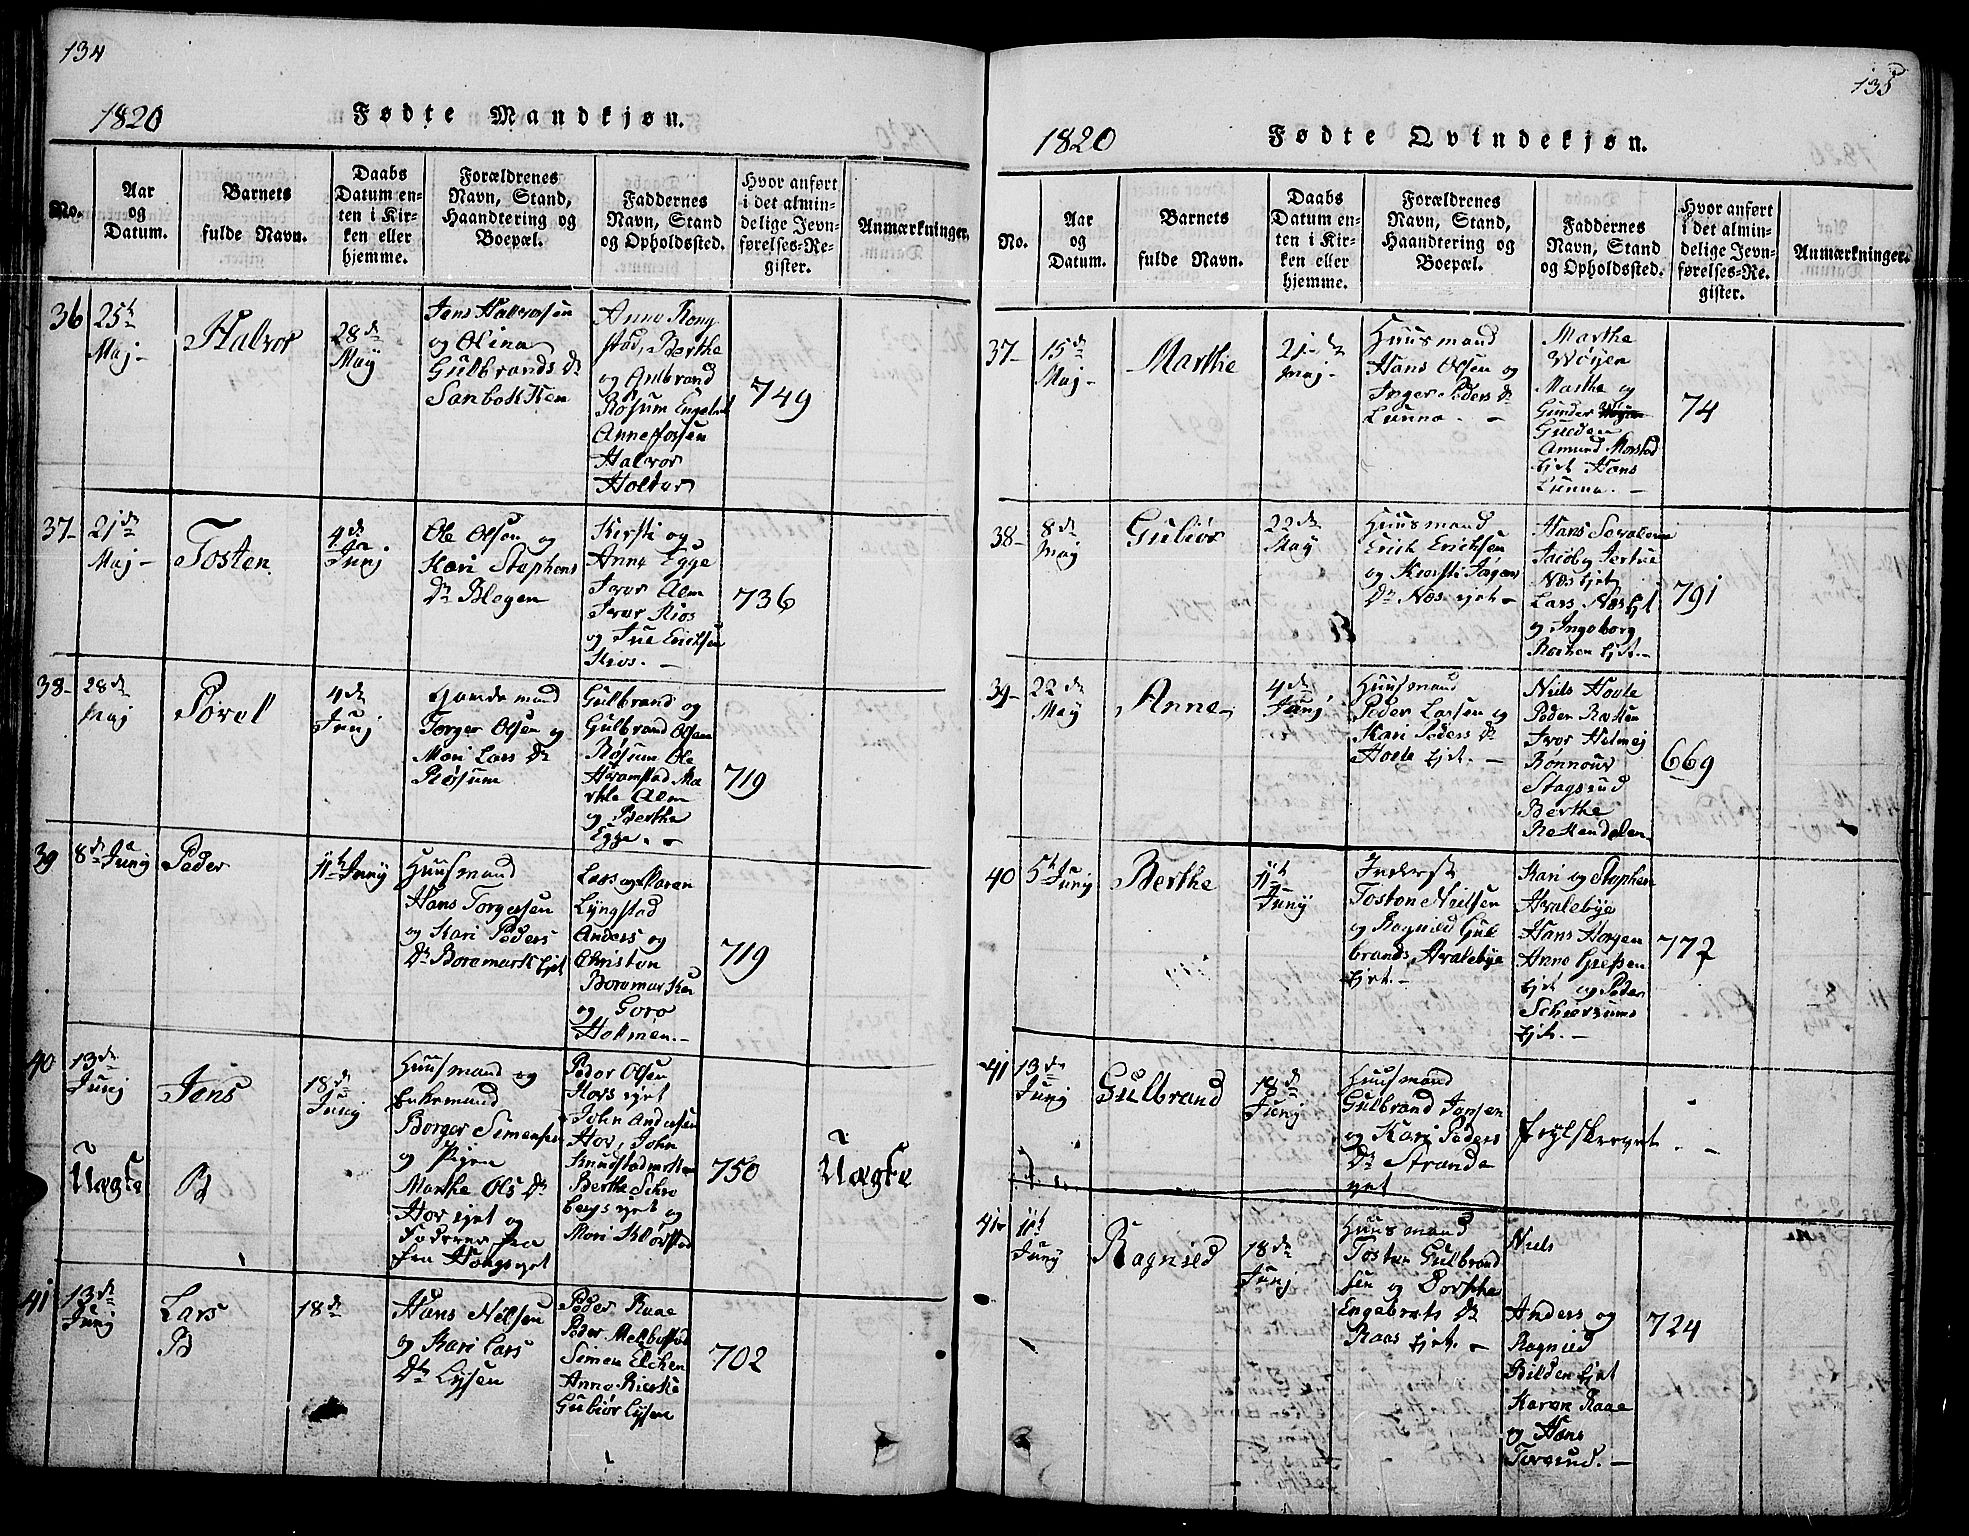 134
1820 Fødte Mandkjøn.
No.
Aar
og
Datum.
Barnets
fulde Navn.
Daabs
Datum en-
ten i Kir-
ken eller
hjemme.
Forældrenes
Navn, Stand,
Haandtering og
Boepæl.
Faddernes
Navn, Stand
og Opholdssted.
Hvor anført
i det almin-
delige Jevn-
førelses-Re-
gister.
Anmærkninger.
36
25de
Maj
Halvor
28de
May
Jens Halvorsen
og Olina
Gulbrands Dr
Sanbakken
Anne Kong
stad, Berthe
og Gulbrand
Røsum Engebret
Halvor
Holter
749
37
21de
Maj
Tosten
4de
Junj
Ole Olsen og
Kari Stephens
Dr Blegen
Kersti og
Anne Egge
Iver Alm
Iver Kios
og Iver Ericksen
Kios.
736
38
28de
Maj
Povel
4de
Junj
Gaardemand
Torger Olsen og
Mari Lars Dr
Røsum
Gulbrand og
Gulbrand Olsen
Røsum Ole
Hramstad Ma
rthe Alm
og Berthe
Egge.
719
39
8de Juny
Peder
11te Juny
Huusmand
Hans Torgersen
og Kari Peders
Dr Boremark Ejet
Lars og Maren
Lyngstad
Anders og
Christen
Boremarken
og Goro
Holmen.
719
40
13de
Junj
Jens
18de
Juny
Huusmand og
Enkemand
Borger Simensen
og Pigen
Marthe Ols Dr
Hov ejet og
fra Haugsejet
Peder Olsen
Hovs ejet
John Andersen
Hov, John
Berthe Schre
bergs ejet og
Mari Kløvstad
750
Uægte
B
Uægte
41
13de
Juny
Lars
B
18de
Hans Nilsen
og Kari Lars
Dr Lysen
Peder Raae
Peder Melbostad
Simen Elchen
Anne Bierke
Gubiør Lysen
702
135
1820 Fødte Qvindekjøn.
No.
Aar
og
Datum.
Barnets
fulde Navn.
Daabs
Datum en-
ten i Kir-
ken eller
hjemme.
Forældrenes
Navn, Stand,
Haandtering og
Boepæl.
Faddernes
Navn, Stand
og Opholdssted.
Hvor anført
i det almin-
delige Jevn-
førelses-Re-
gister.
Anmærkninger.
37
15de
Maj
Marthe
21de
Maj
Huusmand
Hans Olsen og
Inger Peders Dr
Lunna.
Marthe
Wøyen
Marthe og
Gunder
Gulden
Amund Morstad
Ejet Hans
Lunna.
74
38
8de
Maj
Gubiør
22de
May
Huusmand
Erich Ericksen
og Kersti Jagens
Dr Næs ejet
Hans
Jacob og Jertrue
Næs Ejet
Lars Næs Ejt
og Ingeborg
Rækken Ejet.
791
39
22de
May
Anne
4de
Junj
Huusmand
Peder Larsen og
Kari Peders Dr
Hoele Ejet.
Niels Hoele
Peder Rækken
Iver Hilmej
Rønnour
Stagsrud
Berthe
Rækkendalen
669
40
5te Juny
Berthe
11te
Juny
Inderst
Tosten Nielsen
og Ragnild Gul
brands Hvalebye
Ejet.
Kari og Stephen
Hvalebye
Hans Horgen
Anne Græsen
Ejet og Peder
Schiersums
Ejet.
772
41
13de
Juny
Gulbrand
18de
Junj
Huusmand
Gulbrand Jensen
og Kari Peders
Dr Strande
ejet
fejlskrevet
41
11te
Juny
Ragnild
18de
Junj
Huusmand
Tosten Gulbrand
sen og Dorthe
Engebrets Dr
Raas Ejet.
Niels
Anders og
Ragnild
Bilden Ejet
Karen Raae
og Hans
Torsrud.
724